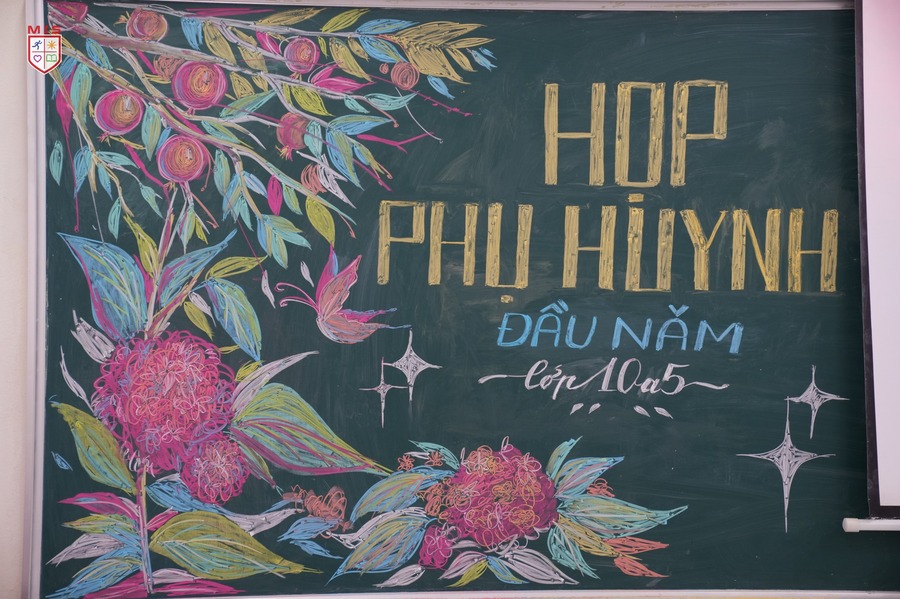 MIS
HỌP
PHỤ HÙYNH
ĐẦU NĂM
lớp 10a5